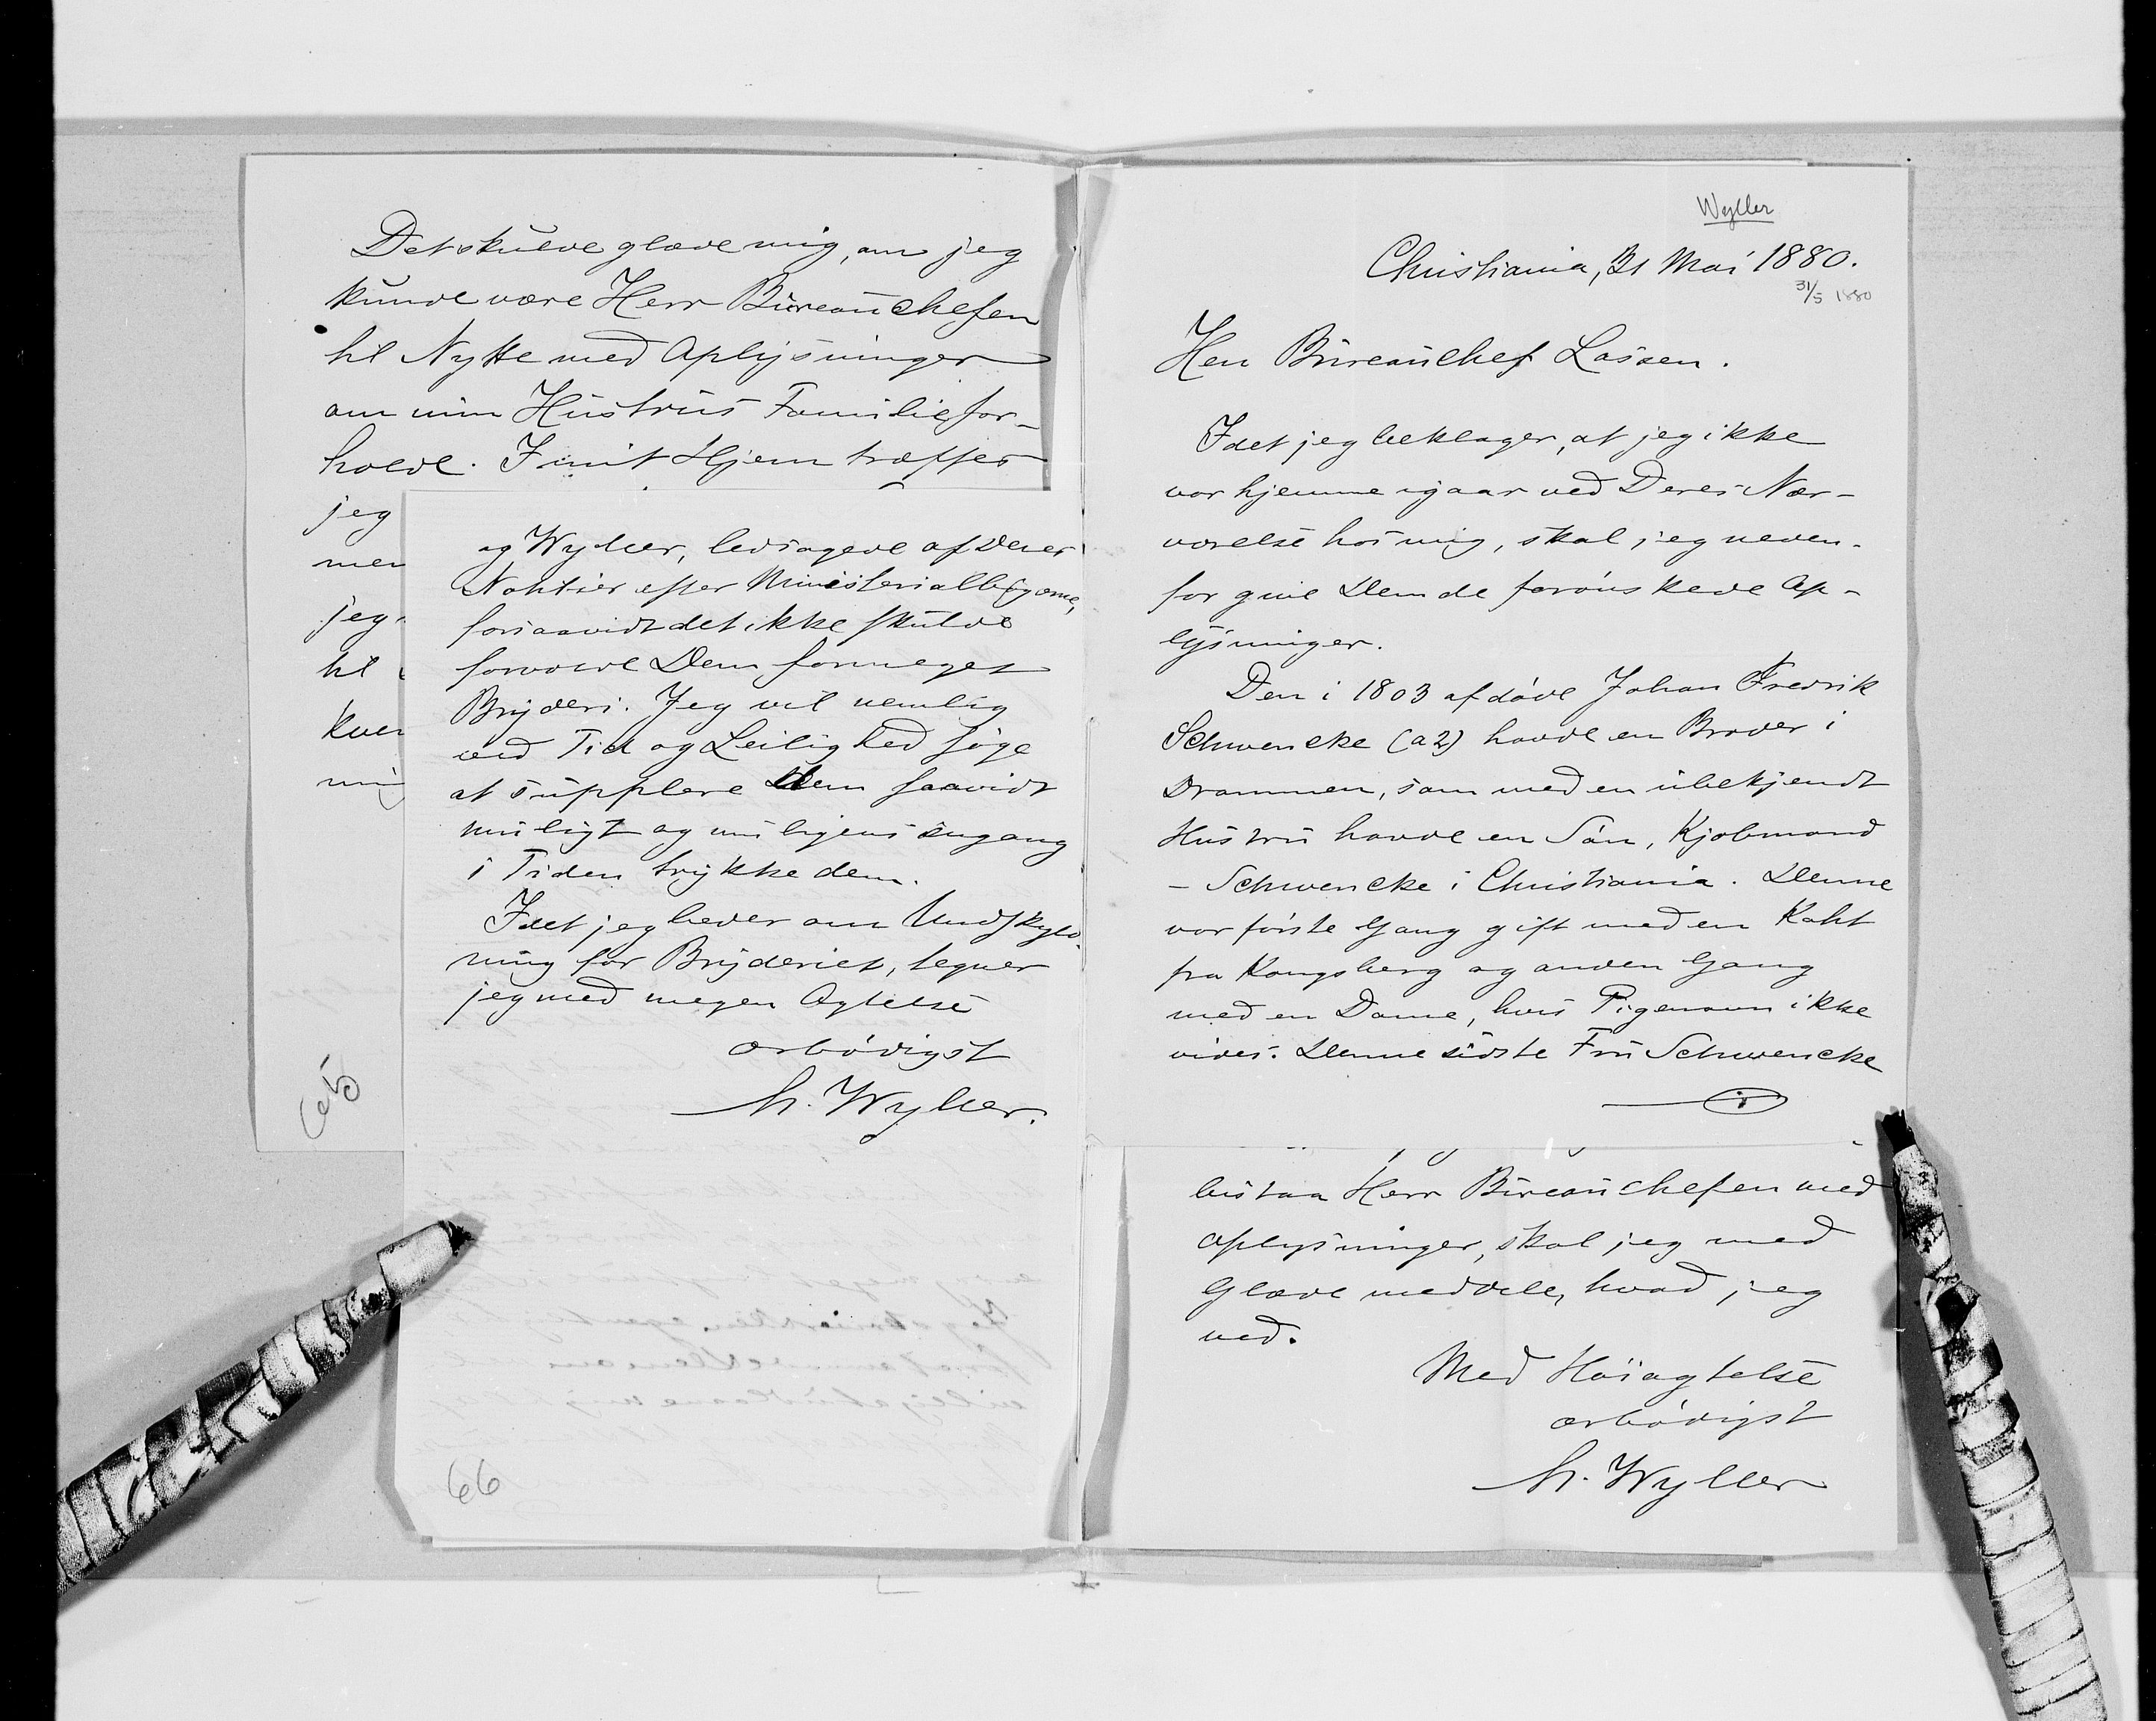 Det skulde glæde mig, om jeg
kunde være Herr Bureauchefen
til Nytte med Oplysninger
om min Hustrus Familiefor-
holde. I mit Hjem træffes
jeg
men
jeg
til
kver
mig
65
og Wyller, ledsagede af Deres
Notitser efter Ministerialbøgerne,
forsaavidt det ikke skulde
forvolde Dem formeget
Bryderi. Jeg vil nemlig
ved Tid og Leilighed søge
at supplere dem saavidt
muligt og muligens engang
i Tiden trykke dem.
Idet jeg beder om Undskyld-
ning for Bryderiet, tegner
jeg med megen Agtelse
ærbödigst
M. Wyller.
66
Wyller
Christiania, 31 Mai 1880.
31/5 1880
Herr Bureauchef Lassen.
Idet jeg beklager, at jeg ikke
var hjemme igaar ved Deres Nær-
værelse hos mig, skal jeg neden-
for give Dem de forönskede Op-
lysninger.
Den i 1803 afdöde Johan Fredrik
Schwencke (a2) havde en Broder i
Drammen, som med en ubekjendt
Hustru havde en Sön, Kjøbmand
- Schwencke i Christiania. Denne
var förste Gang gift med en Koht
fra Kongsberg og anden Gang
med en Dame, hvis Pigenavn ikke
vides. Denne sidste Fru Schwencke
bistaa Herr Bureauchefen med
Oplysninger, skal jeg med
Glæde meddele, hvad jeg
ved.
Med Höiagtelse
ærbödigst
M. Wyller